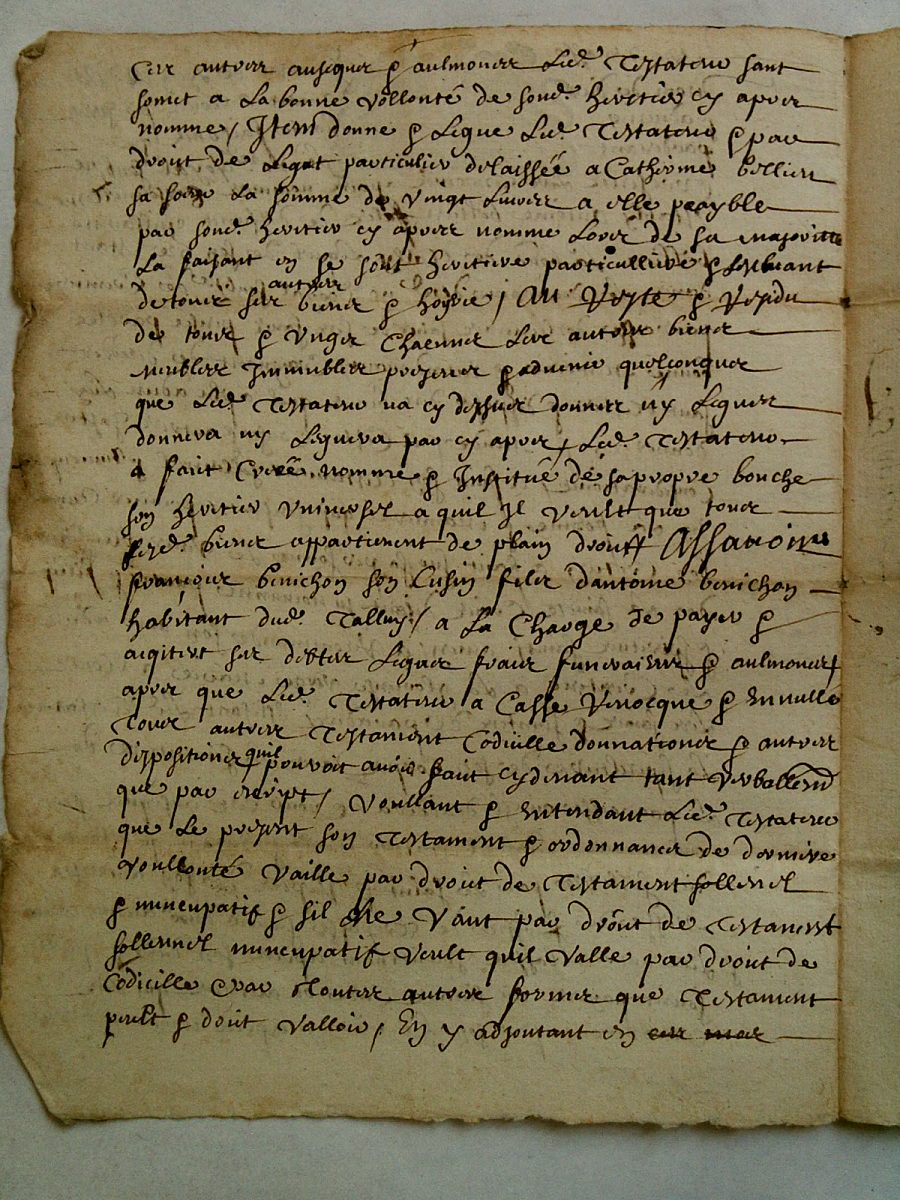 Les autres ausques & aulmones led. Testateur sant
somet a La bonne vollonté de sond. heretier cy apres
nomme / Item donne & Legue Led. Testateur & par
droit de Legat particulier delaissée a Catherine bellien
sa soeur La somme de vingt Livres a elle payable
par sond. heretier cy apres nomme Lors de sa majoritte
La faisant en se sont heretiere particulliere &
de tous ses autres biens & hoyrie / Au Reste & Residu
de tous & ungs Chacuns ses autres biens
meubles Immeubles presens & advenir quelconques
que Led. Testateur na cy dessus donnes ny Legues
donnera ny Leguera par cy apres Led. Testateur
a fait Creé nomme & Institué de sa propre bouche
son heretier universel a quil Il veult que tous
sesd. biens appartienent de plain droit Assavoir
françois benichon son Cusin fils dantoine benichon
habitant dud. Talluy / a La Charge de payer &
aqiter ses debtes Legas frais funeraires & aulmones
apres que Led. Testateur a Casse Revocque & Ennulle
Tous autres Testament Codicille donnations & autres
dispositions quil pouvoit avoir fait cydevant tant verballemt
que par escript / Voullant & Entendant Led. Testateur
que Le present son Testament & ordonnance de derniere
voullonté Vaille par droit de Testament sollenel
& nuncupatif & sil Ne Vaut par droit de Testament
sollennel nuncupatif veult quil Valle par droit de
Codicille & par toutes autres formes que Testament
peult & doit valloir / En y adjoutant en